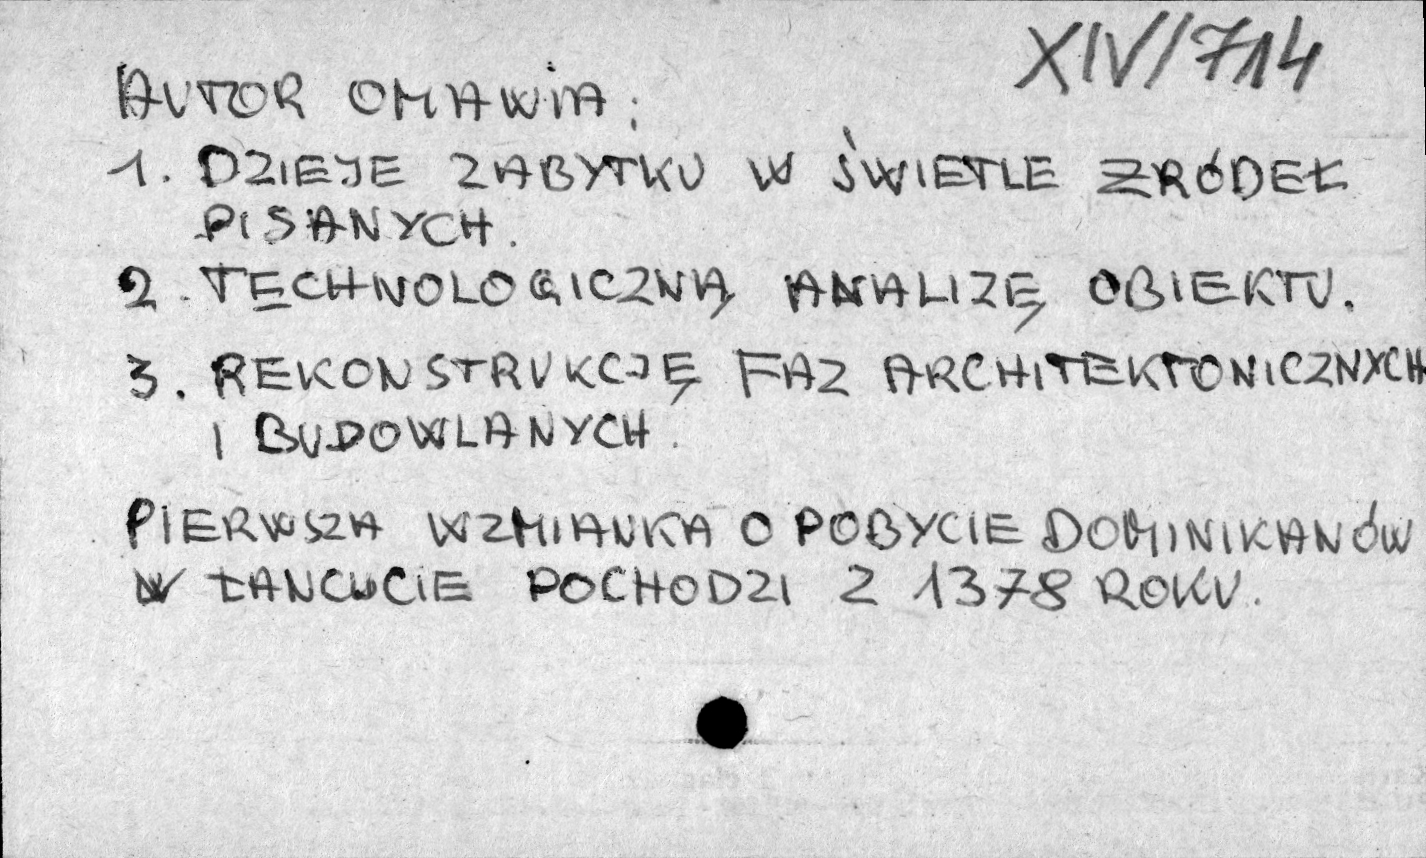 XIV/714
AUTOR OMAWIA:
1. DZIEJE ZABYTKU W ŚWIETLE ŹRÓDEŁ
PISANYCH.
2. TECHNOLOGICZNĄ ANALIZĘ OBIEKTU.
3. REKONSTRUKCJĘ FAZ ARCHITEKTONICZNYCH
I BUDOWLANYCH.
PIERWSZA WZMIANKA O POBYCIE DOMINIKANÓW
W ŁANCUCIE POCHODZI Z 1378 ROKU.